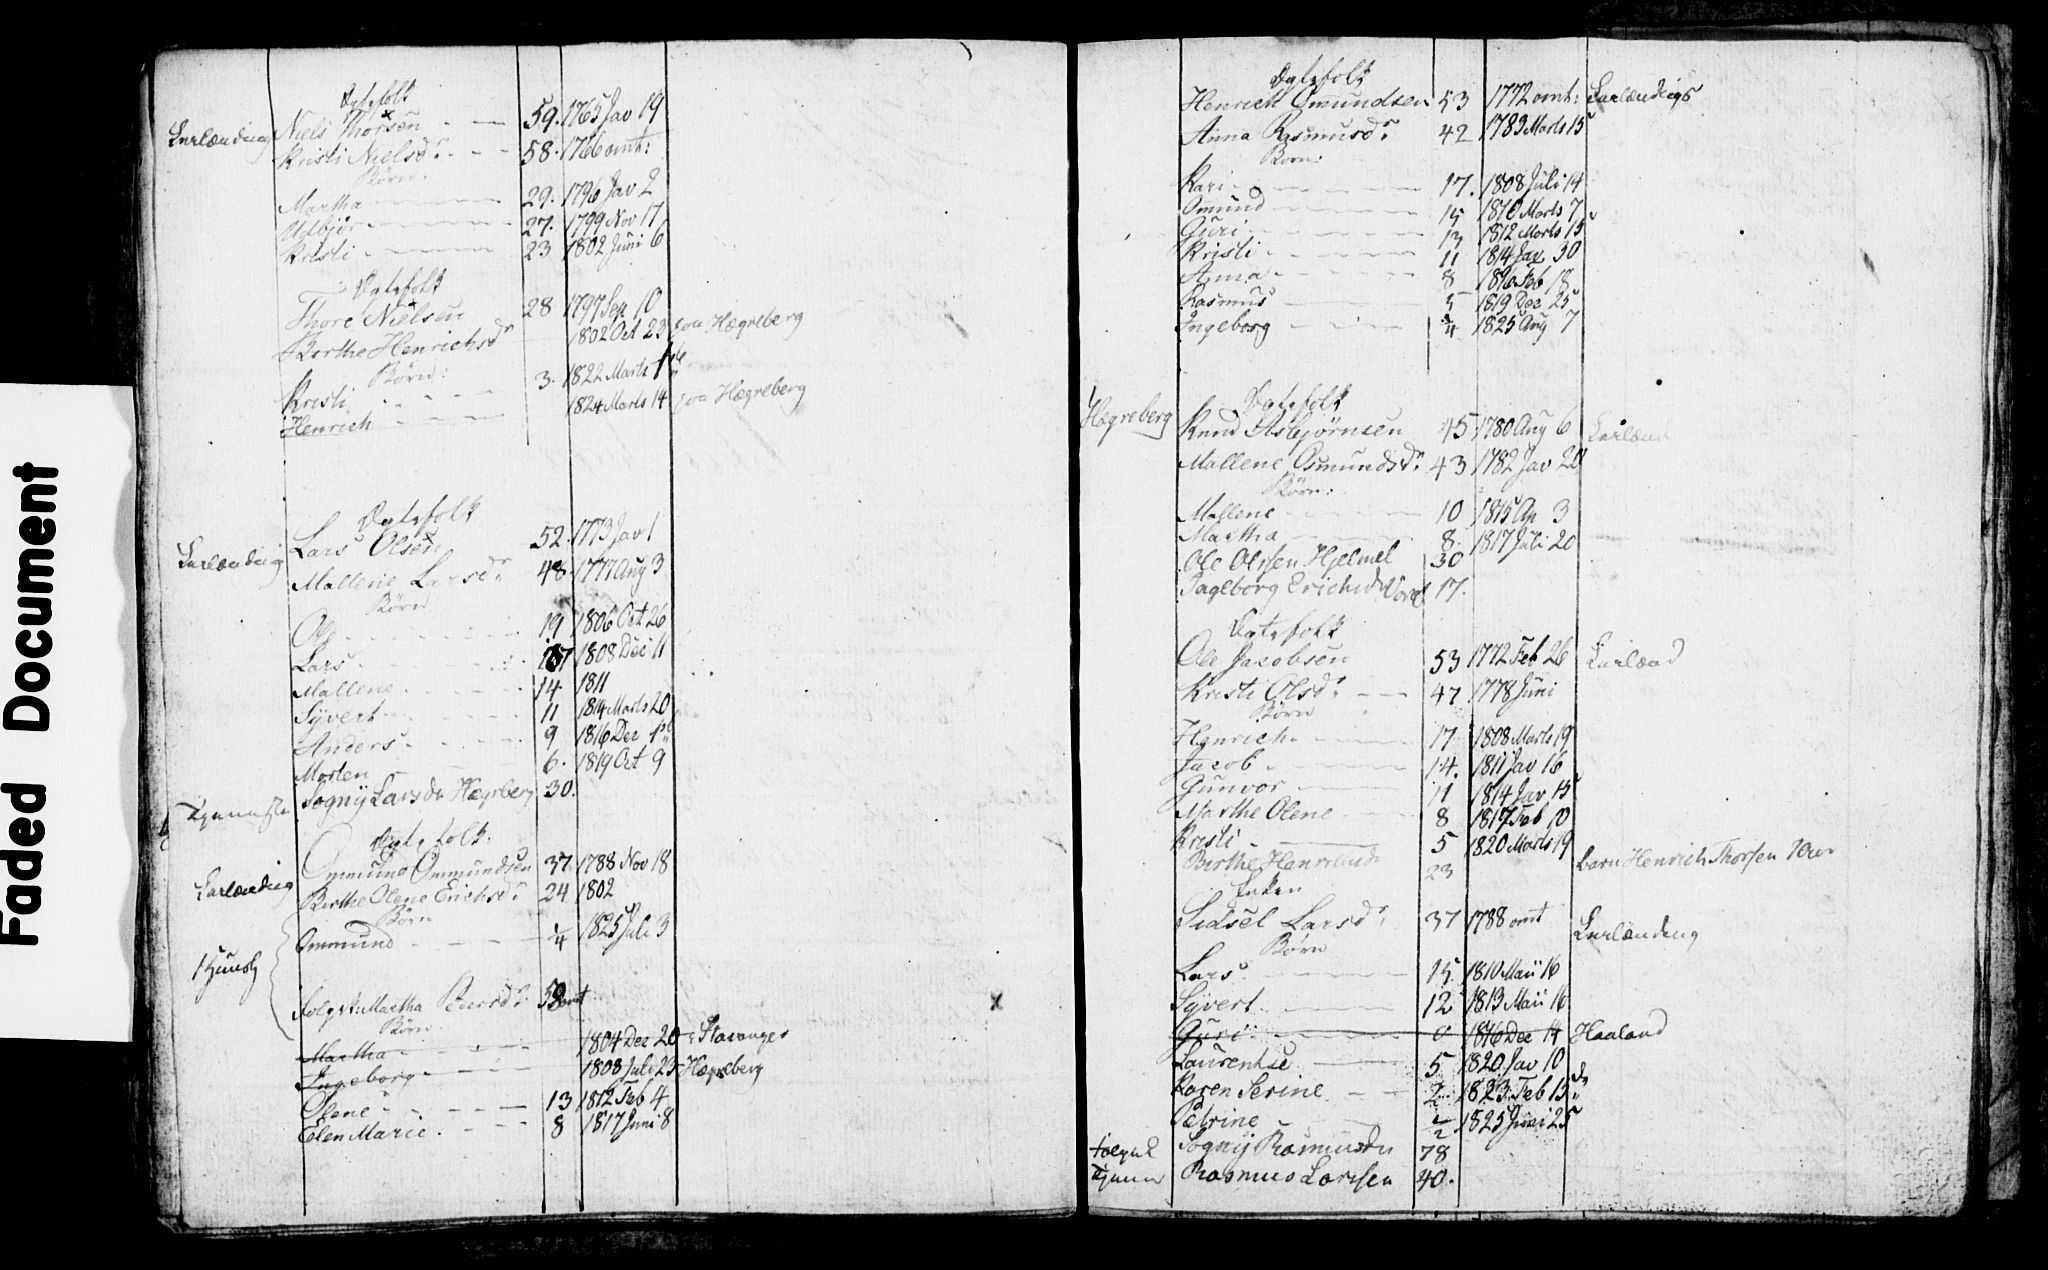 Faded Document
Egtefolk
Lurlænding Niels Thorsen 59. 1765 Jav 19
Kristi Nielsdr 58. 1766 omt:
Børn:
Martha 29. 1796 Jav 2
27. 1799 Nov 17
Kristi 23 1802 Juni 6
Egtefolk
Thore Nielsen 28 1797 Sep 10
Berthe Henrichsdr 1802 Oct 23 paa Hægreberg
Børn:
Kristi 3. 1822 Marts 1ste
Henrich 1824 Marts 14 paa Hægreberg
Egtefolk
Lurlænding Lars Olsen 52. 1773 Jav 1
Mallene Larsdr 48. 1777 Aug 3
Børn
Ole 19 1806 Oct 26
Lars 17 1808 Dec 11
Mallene 14 1811
Syvert 11 1814 Marts 20
Anders 9 1816 Dec 1st
Morten 6. 1819 Oct 9
Tjeneste Sogny Larsdr Hægreberg 30.
Egtefolk.
Lurlænding Ommund Ommundsen 37 1788 Nov 18
Birthe Olene Erichsdr 24 1802
Børn
Ommund 1/4 1825 Juli 3
Martha Peersdr: omt
Børn
Martha 1804 Dec 20 Stavanger
Ingeborg 1808 Juli 25 Hægreberg
Olene 13 1812 Feb 4
Elen Marie 8 1817 Juni 8
Egtefolk
Henrich Ommundsen 53 1772 omt: Lurlændings
Anna Rasmusdr 42 1783 Marts 15
Børn:
Kari 17. 1808 Juli 14
Omund 15 1810 Marts 7
Guri 13 1812 Marts 15
Kristi 11 1814 Jav 30
Anna 8 1816 Feb 18
Rasmus 5 1819 Dec 25
Ingeborg 1/4 1825 Aug 7
Egtefolk
Hægreberg Knud Asbjørnsen 45 1780 Aug 6 Lurlænd
Mallene Osmundsdr 43 1782 Jav 20
Børn:
Mallene 10 1815 Ap 3
Martha 8. 1817 Juli 20
Ole Olssen Hjelmel 30
Ingeborg Erichsd 17.
Egtefolk
Ole Jacobsen 53 1772 Feb 26 Lurlænd
Kristi Olsdr 47 1778 Juni
Børn
Henrich 17 1808 Marts 19
Jacob 14. 1811 Jav 16
Gunvor 11 1814 Jav 15
Marthe Olene 8 1817 Feb 10
Kristi 5 1820 Marts 19
Birthe Henrichsdr 23 barn Henrich Thorsen 1 aar
Enken
Sidsel Larsdr 37 1788 omt Lurlænding
Børn
Lars 15 1810 Maii 16
Syvert 12 1813 Maii 16
Guri 1816 Dec 14 Haaland
Laurentse 5 1820 Jav 10
Karen Serine 2 1823 Feb 15 do
Petrine 1/2 1825 Juni 25
Sogny Rasmusdr 78
Tjener Rasmus Larssen 40.